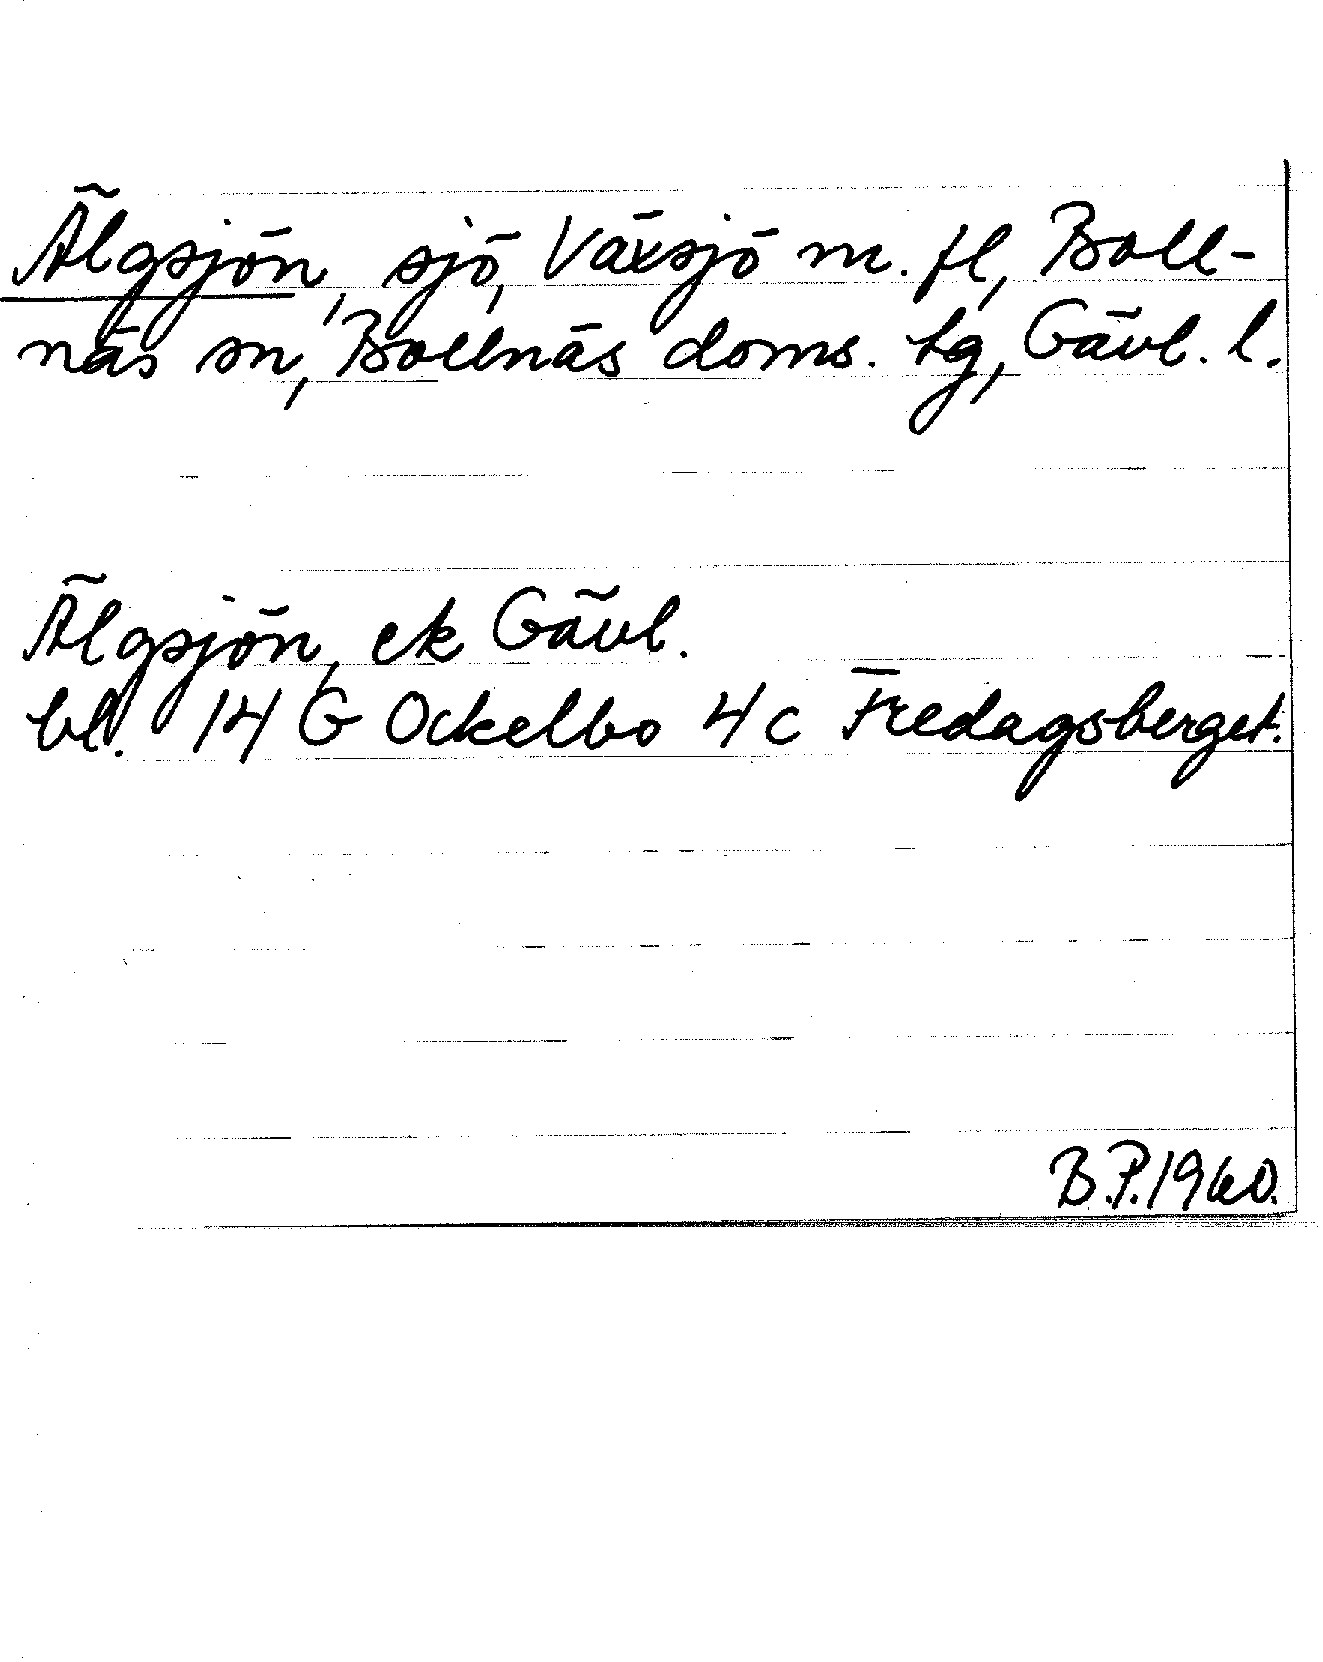 Älgsjön, sjö, Växsjö m. fl, Boll-
näs sn, Bollnäs doms. tg, Gävl. l.
Älgsjön, ek Gävl.
bl. 14 G Ockelbo 4 c Fredagsberget.
B.P.1960.